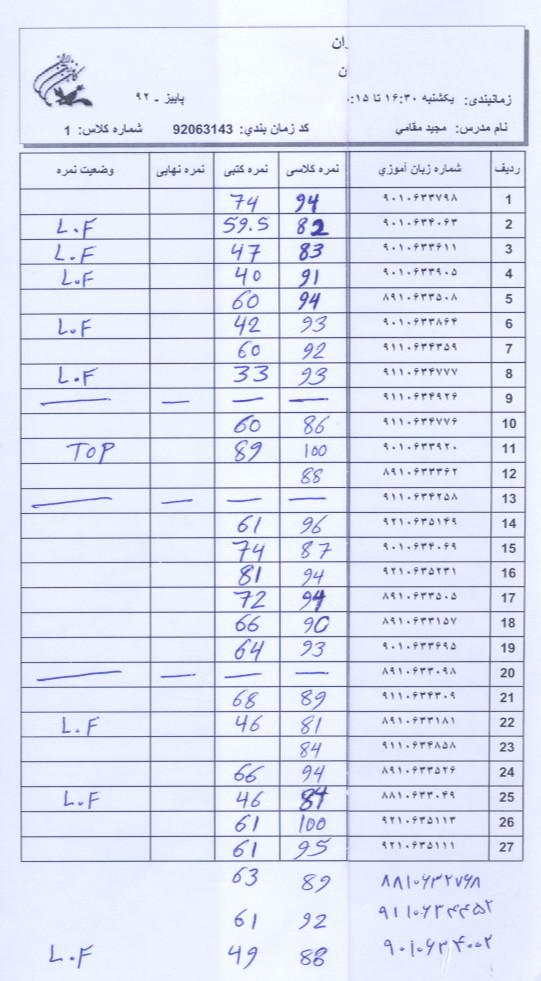 ران
ن
زمانبندی: یکشنبه ۱۶:۳۰ تا ۱۵: پاییز - ۹۲
نام مدرس: مجید مقامی کد زمان بندی: 92063143 شماره کلاس: 1
ردیف شماره زبان آموزی نمره کلاسی نمره کتبی نمره نهایی وضعیت نمره
1 ۹۰۱۰۶۳۳۷۹۸ 94 74
2 ۹۰۱۰۶۳۴۰۶۳ 82 59.5 L.F
3 ۹۰۱۰۶۳۳۶۱۱ 83 47 L.F
4 ۹۰۱۰۶۳۳۹۰۵ 91 40 L.F
5 ۸۹۱۰۶۳۳۵۰۸ 94 60
6 ۹۰۱۰۶۳۳۸۶۴ 93 42 L.F
7 ۹۱۱۰۶۳۴۳۵۹ 92 60
8 ۹۱۱۰۶۳۴۷۷۷ 93 33 L.F
9 ۹۱۱۰۶۳۴۹۲۶ — — — —
10 ۹۱۱۰۶۳۴۷۷۶ 86 60
11 ۹۰۱۰۶۳۳۹۲۰ 100 89 TOP
12 ۸۹۱۰۶۳۳۳۶۲ 88
13 ۹۱۱۰۶۳۴۲۵۸ — — — —
14 ۹۲۱۰۶۳۵۱۴۹ 96 61
15 ۹۰۱۰۶۳۴۰۶۹ 87 74
16 ۹۲۱۰۶۳۵۲۳۱ 94 81
17 ۸۹۱۰۶۳۳۵۰۵ 94 72
18 ۸۹۱۰۶۳۳۱۵۷ 90 66
19 ۹۰۱۰۶۳۳۶۹۵ 93 64
20 ۸۹۱۰۶۳۳۰۹۸ — — — —
21 ۹۱۱۰۶۳۴۳۰۹ 89 68
22 ۸۹۱۰۶۳۳۱۸۱ 81 46 L.F
23 ۹۱۱۰۶۳۴۸۵۸ 84
24 ۸۹۱۰۶۳۳۵۲۶ 94 66
25 ۸۸۱۰۶۳۳۰۴۹ 84 46 L.F
26 ۹۲۱۰۶۳۵۱۱۳ 100 61
27 ۹۲۱۰۶۳۵۱۱۱ 95 61
۸۸۱۰۶۳۲۷۶۸ 89 63
۹۱۱۰۶۳۴۴۵۲ 92 61
۹۰۱۰۶۳۴۰۰۲ 88 49 L.F